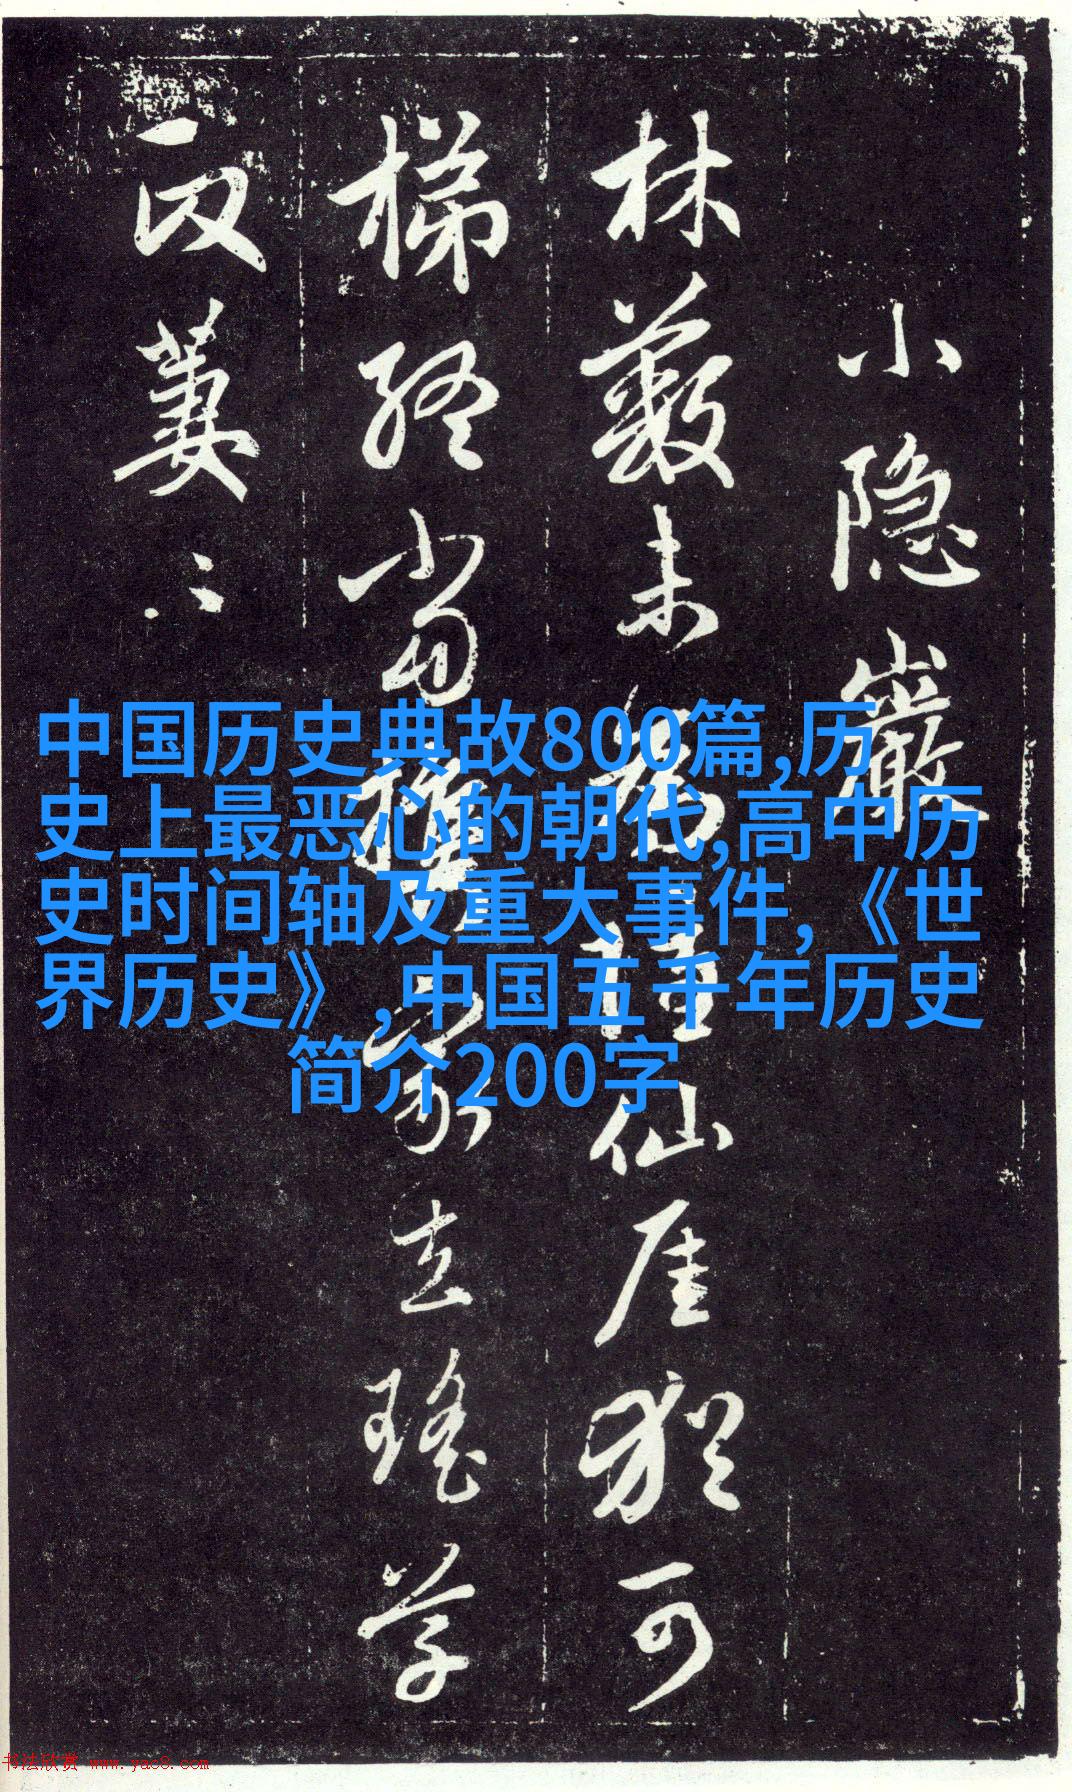 小隱巖
林薮未仙厓猶可
梯終當攜家去瑤草
萋〻
中国历史典故800篇,历
史上最恶心的朝代,高中历
史时间轴及重大事件,《世
界历史》,中国五千年历史
简介200字
书法欣赏 www.yac8.com